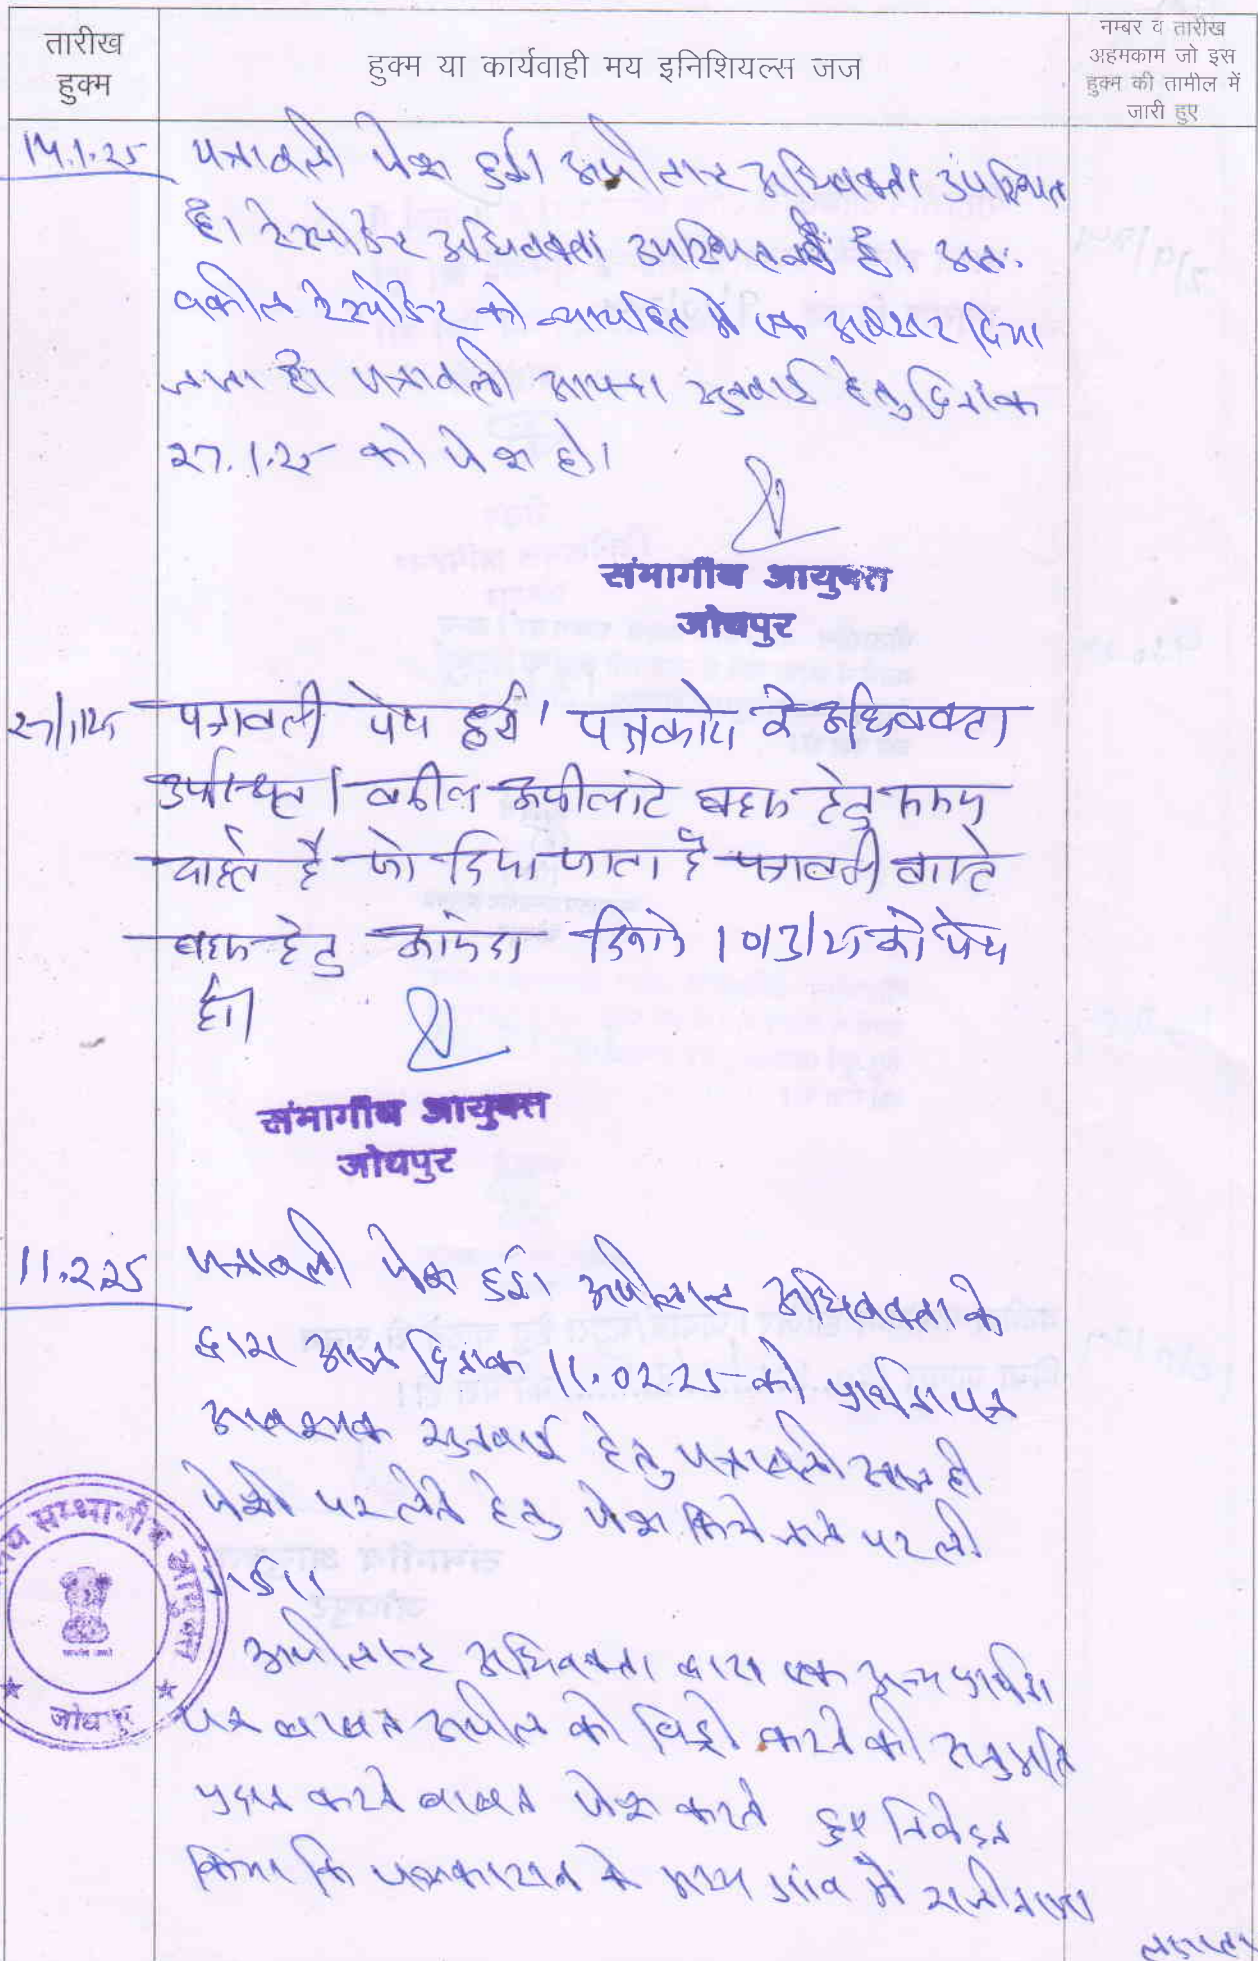 तारीख
हुक्म
हुक्म या कार्यवाही मय इनिशियल्स जज
नम्बर व तारीख
अहमकाम जो इस
हुक्म की तामील में
जारी हुए
14.1.25
पत्रावली पेश हुई। अपीलान्ट अधिवक्ता उपस्थित
है। रेस्पोडेन्ट अधिवक्ता उपस्थित नहीं है। अतः
वकील रेस्पोडेन्ट को न्यायहित में एक अवसर दिया
जाता है। पत्रावली आयन्दा सुनवाई हेतु दिनांक
27.1.25 को पेश हो।
संभागीय आयुक्त
जोधपुर
27/1/25
पत्रावली पेश हुई। पक्षकारों के अधिवक्ता
उपस्थित। वकील अपीलांट बहस हेतु समय
चाहते है जो दिया जाता है पत्रावली वास्ते
बहस हेतु आईन्दा दिनांक 10/3/25 को पेश
हो।
संभागीय आयुक्त
जोधपुर
11.2.25
पत्रावली पेश हुई। अपीलान्ट अधिवक्ता के
द्वारा आज दिनांक 11.02.25 को प्रार्थना पत्र
आवश्यक सुनवाई हेतु पत्रावली आज ही
पेशी पर लेने हेतु पेश किये जाने पर ली
गई।
सम्भागीय आयुक्त
जोधपुर
अपीलान्ट अधिवक्ता द्वारा एक अन्य प्रार्थना
पत्र बाबत अपील को विड्रो करने की अनुमति
प्रदान करने बाबत पेश करते हुए निवेदन
किया कि पक्षकारान के मध्य गांव में राजीनामा
लगातार